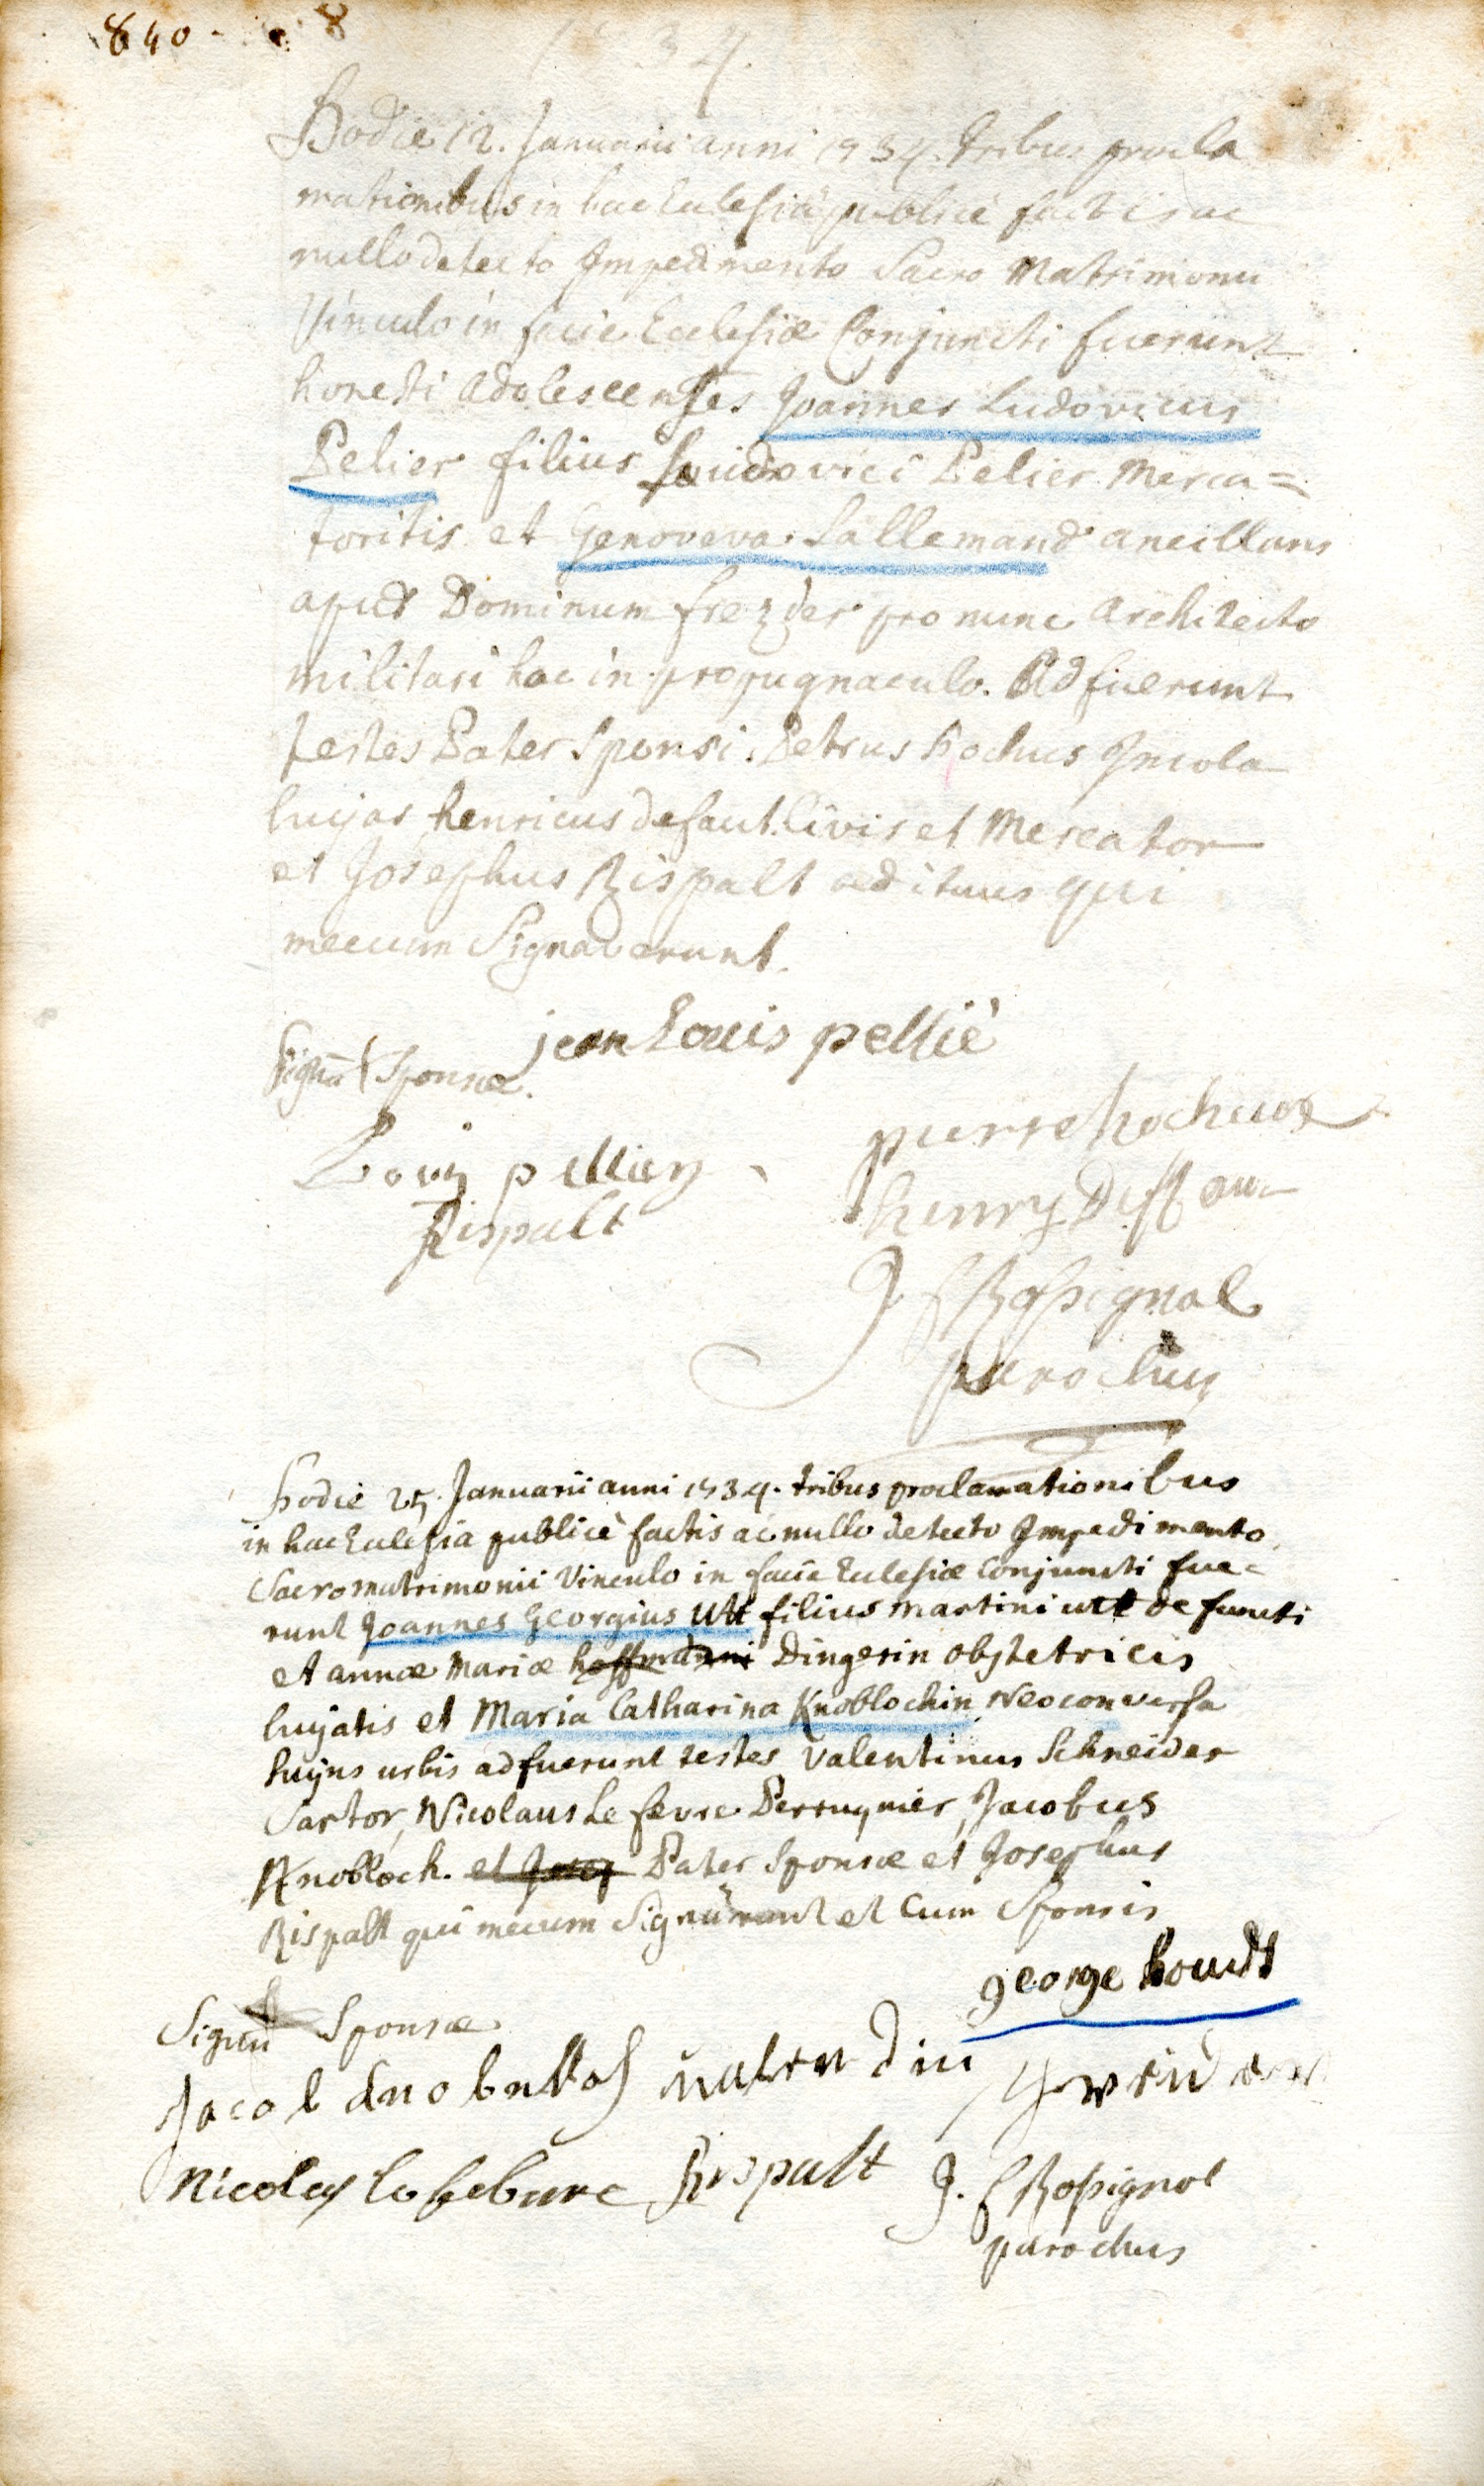 840. 8
1734
Hodie 12. Januarii anni 1734. tribus procla
mationibus in hac Ecclesiâ publicè factis ac
nullo detecto Impedimento Sacro Matrimonii
Vinculo in facie Ecclesiæ Conjuncti fuerunt
honesti adolescentes Joannes Ludovicus
Pelier filius Ludovici Pelier Merca=
toritis et Genoveva Lallemand ancillans
apud Dominum frezier pro nunc architecto
militari hac in propugnaculo. Adfuerunt
testes Pater Sponsi. Petrus hochus Incola
hujas henricus defaut. Civis et Mercator
et Josephus Rispalt ædituus qui
mecum Signaverunt.
jean Louis pellié
Signũ Sponsæ.
pierre hochuox
Louis pellier
henry Deffau
Rispalt
J. Rossignol
parochus
hodie 25. Januarii anni 1734. tribus proclamationibus
in hac Ecclesia publicè factis ac nullo detecto Impedimento
Sacro matrimonii Vinculo in facie Ecclesiæ Conjuncti fue=
runt Joannes Georgius Utt filius martini utt defuncti
et annæ Mariæ hoffmanni Dingerin obstetricis
hujatis et Maria Catharina Knoblochin Neoconversa
hujus urbis adfuerunt testes Valentinus Schneider
Sartor, Nicolaus Le fevre Perruquier, Jacobus
Knobloch. et Josep Pater Sponsæ et Josephus
Rispalt qui mecum Signarunt et Cum Sponsis
george houdt
Signũ Sponsæ
Jacob Knobelloch valendin Schneider
Nicolas lefebure Rispalt J. Rossignol
parochus